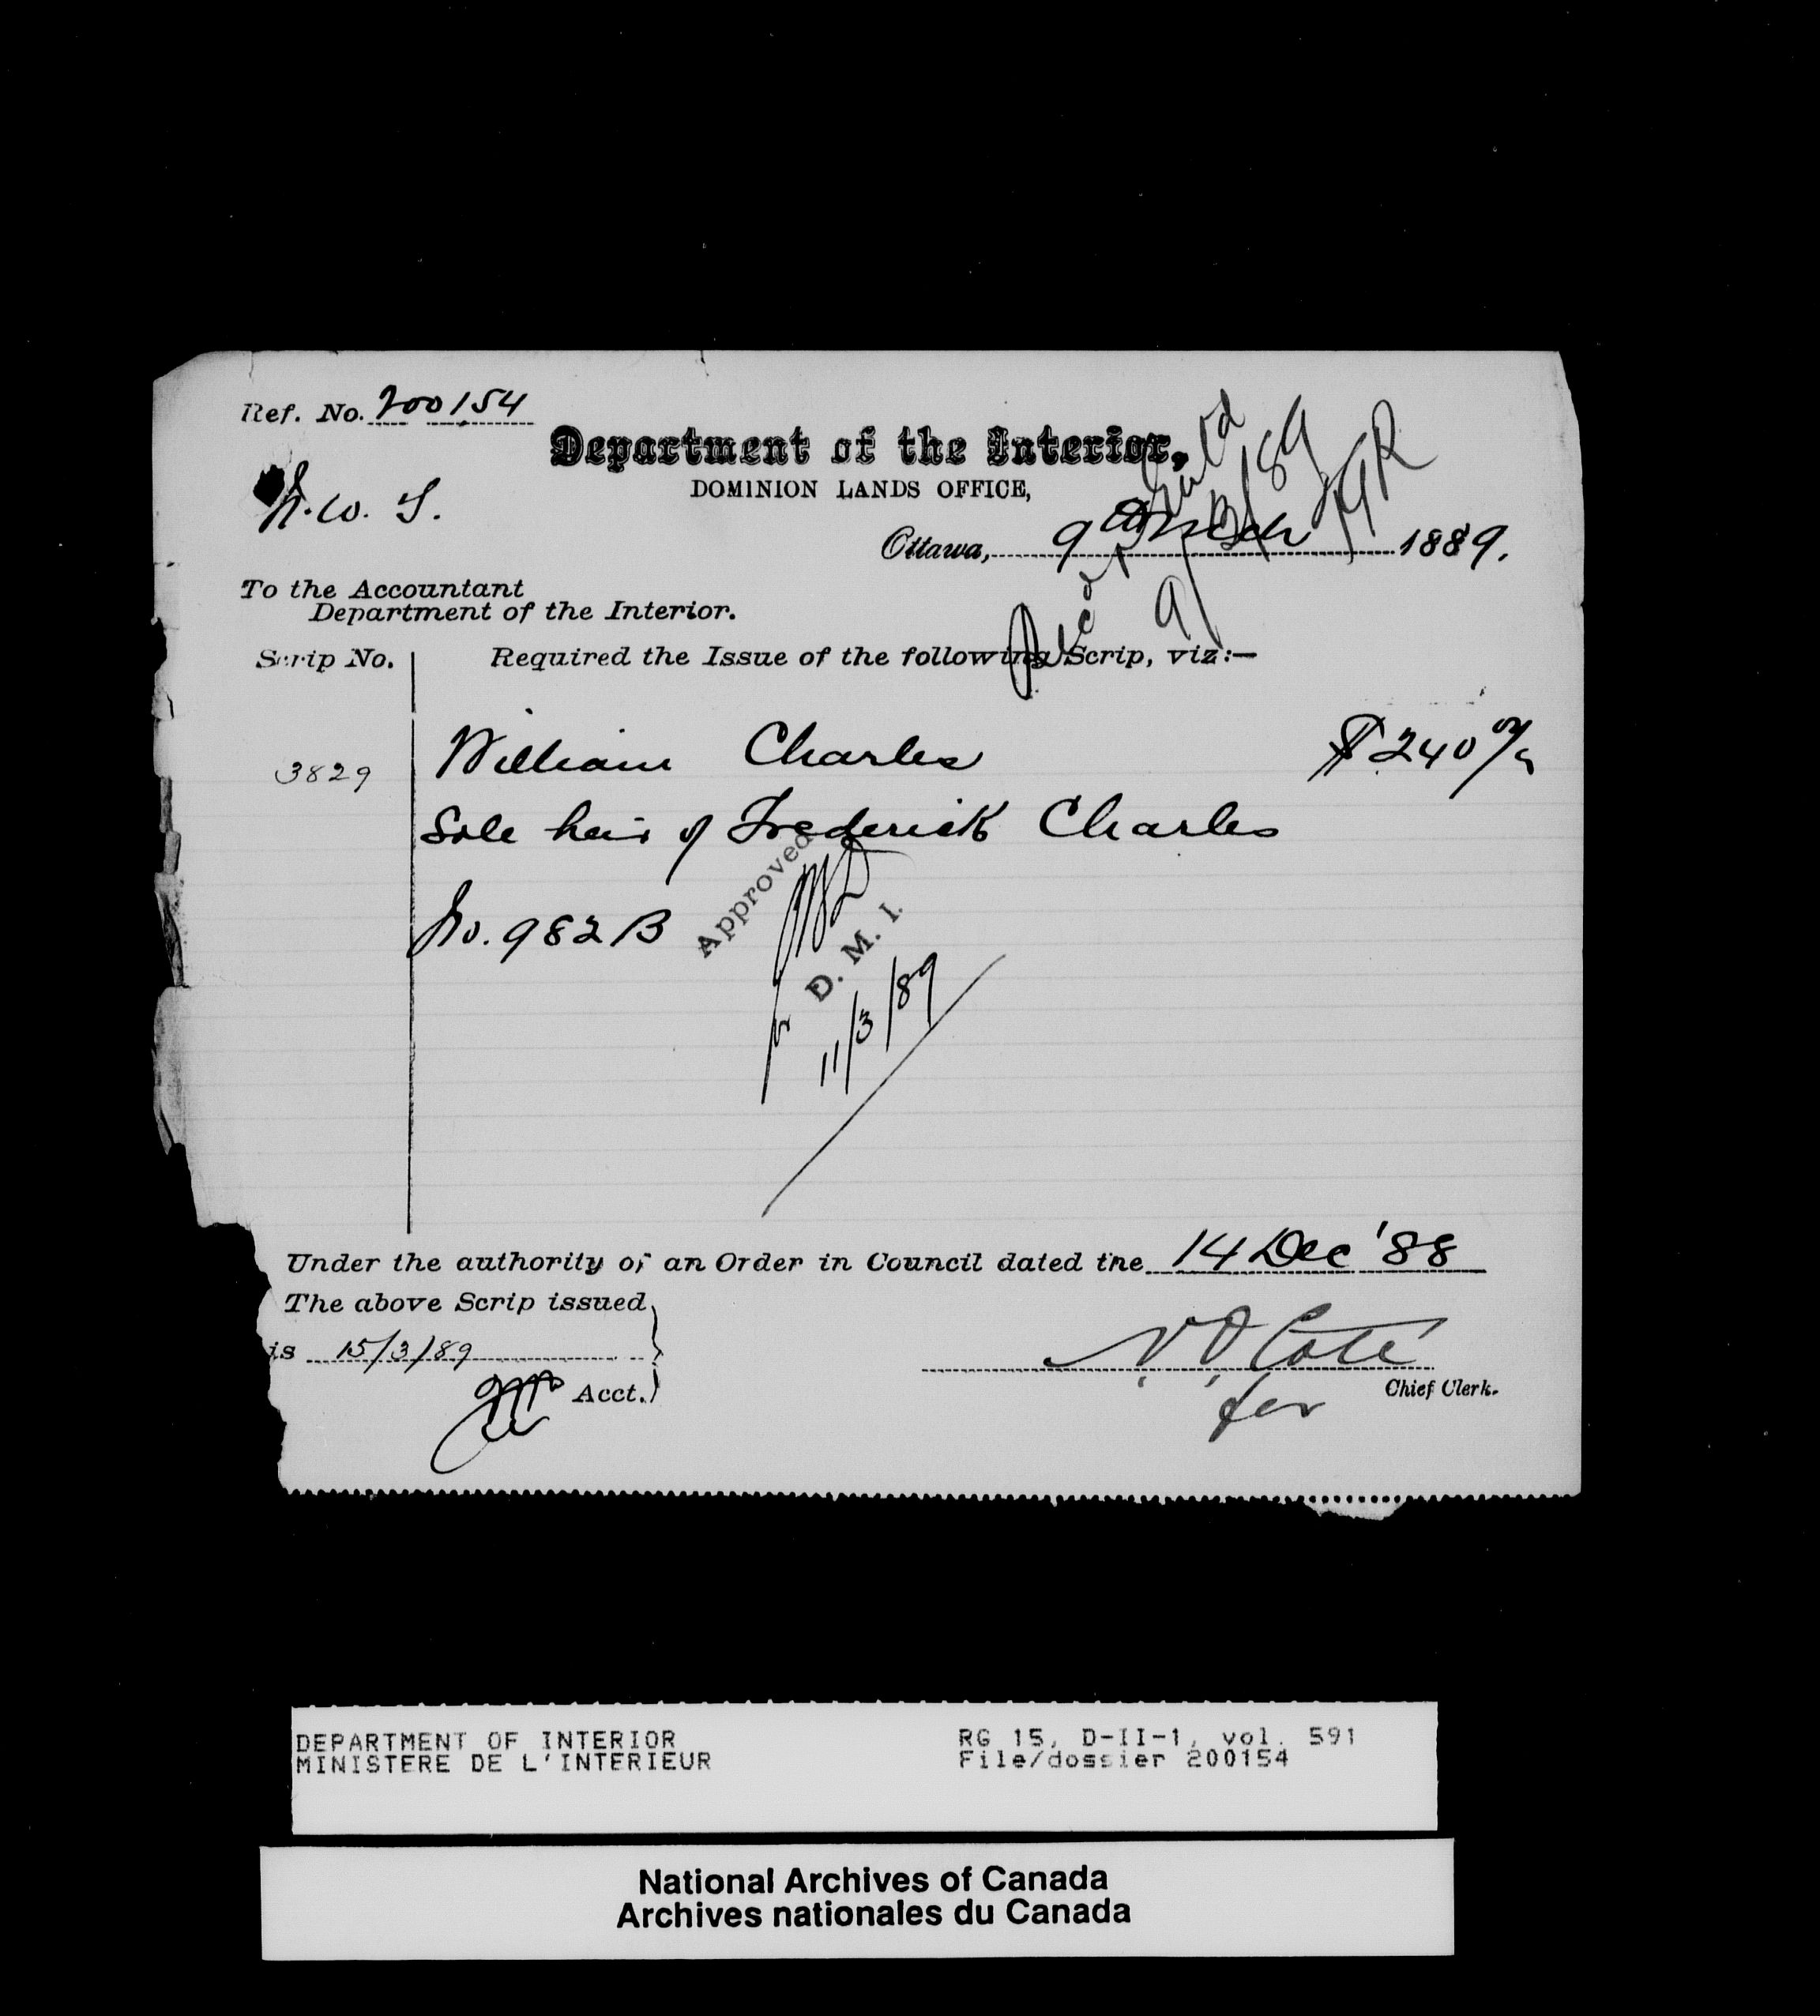 Ref. No. 200154
Department of the Interior,
DOMINION LANDS OFFICE,
N.W.T.
Ottawa, 9 March 1889.
9/3/89
To the Accountant
Department of the Interior.
Scrip No.
Required the Issue of the following Scrip, viz:—
3829
William Charles $240 00/
Sole heir of Frederick Charles
No. 982 B
Approved
D. M. I.
11/3/89
Under the authority of an Order in Council dated the 14 Dec '88
The above Scrip issued
is 15/3/89
Acct.
N.O. Coté
for
Chief Clerk.
DEPARTMENT OF INTERIOR
MINISTERE DE L'INTERIEUR
RG 15, D-II-1, vol. 591
File/dossier 200154
National Archives of Canada
Archives nationales du Canada